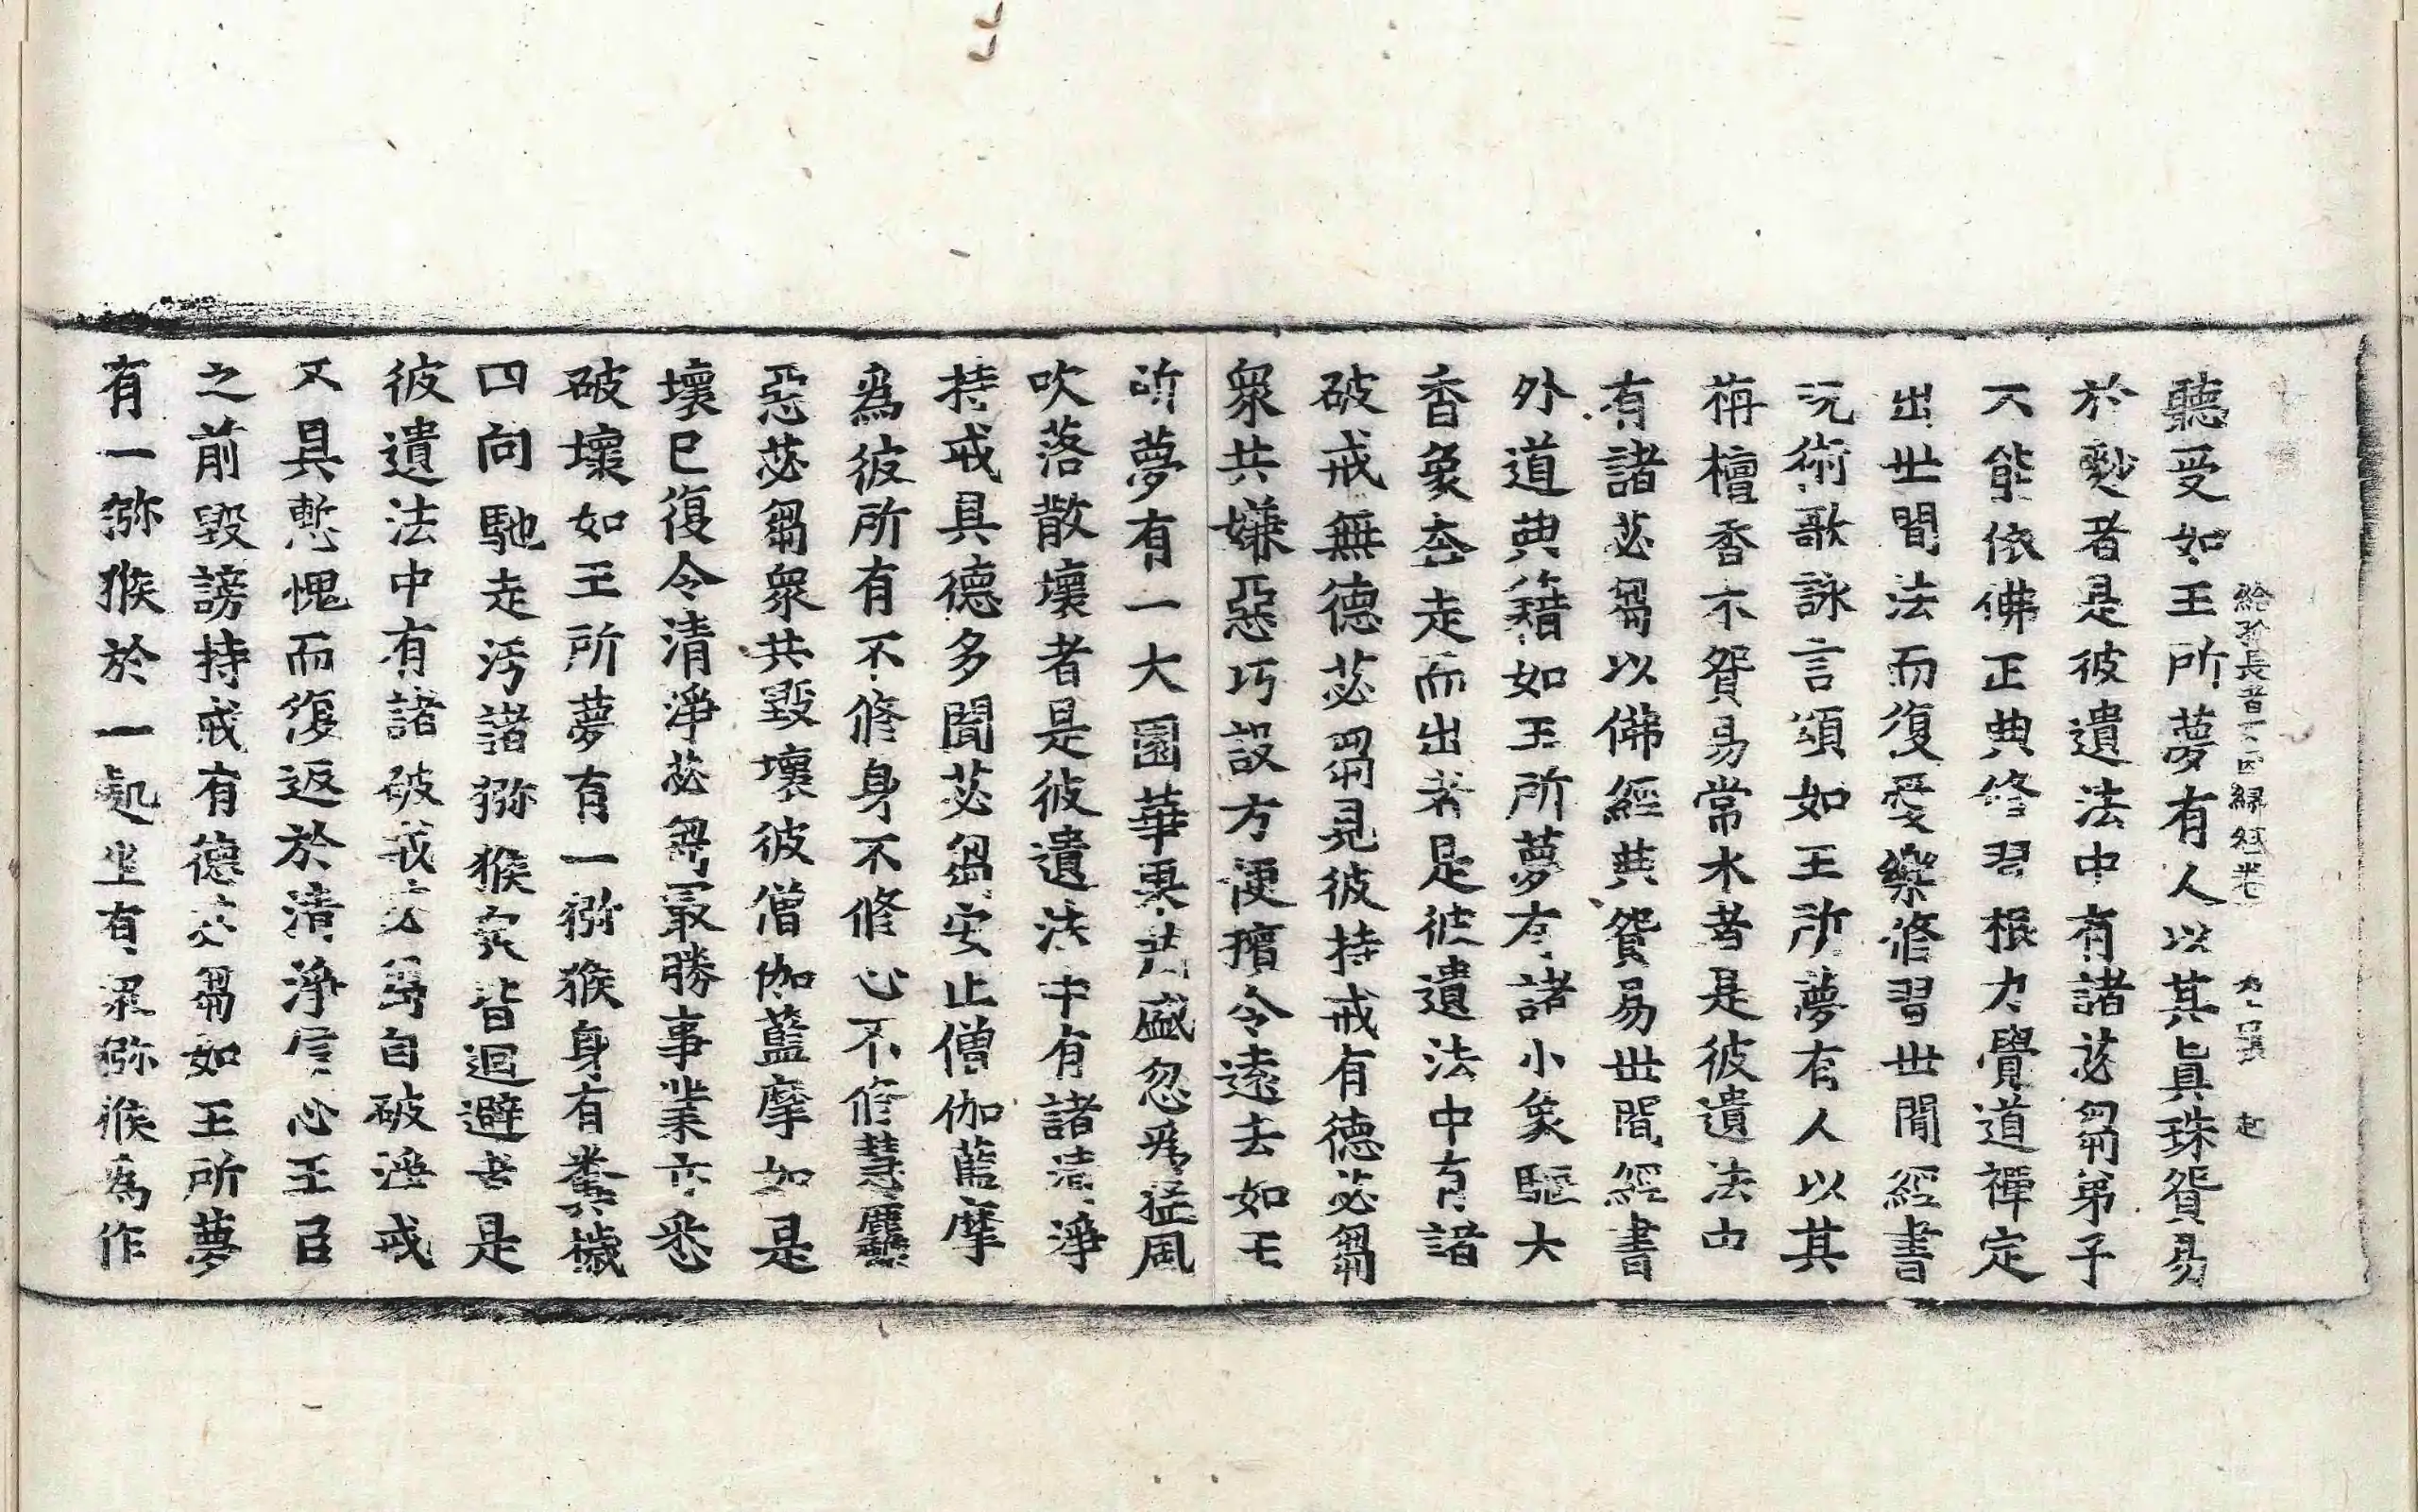 給孤長者女因緣經卷下 九張 起
聽受如王所夢有人以其眞珠貿易
於麨者是彼遺法中有諸苾芻弟子
不能依佛正典修習根力覺道禪定
出世間法而復愛樂修習世間經書
呪術歌詠言頌如王所夢有人以其
栴檀香木貿易常木者是彼遺法中
有諸苾芻以佛經典貿易世間經書
外道典籍如王所夢有諸小象驅大
香象奔走而出者是彼遺法中有諸
破戒無德苾芻見彼持戒有德苾芻
衆共嫌惡巧設方便擯令遠去如王
所夢有一大園華菓茂盛忽爲猛風
吹落散壞者是彼遺法中有諸清淨
持戒具德多聞苾芻安止僧伽藍摩
爲彼所有不修身不修心不修慧麤
惡苾芻衆共毀壞彼僧伽藍摩如是
壞已復令清淨苾芻最勝事業亦悉
破壞如王所夢有一獼猴身有糞穢
四向馳走汚諸獼猴衆皆迴避者是
彼遺法中有諸破戒苾芻自破淨戒
又具慙愧而復返於清淨信心王臣
之前毀謗持戒有德苾芻如王所夢
有一獼猴於一處坐有衆獼猴爲作